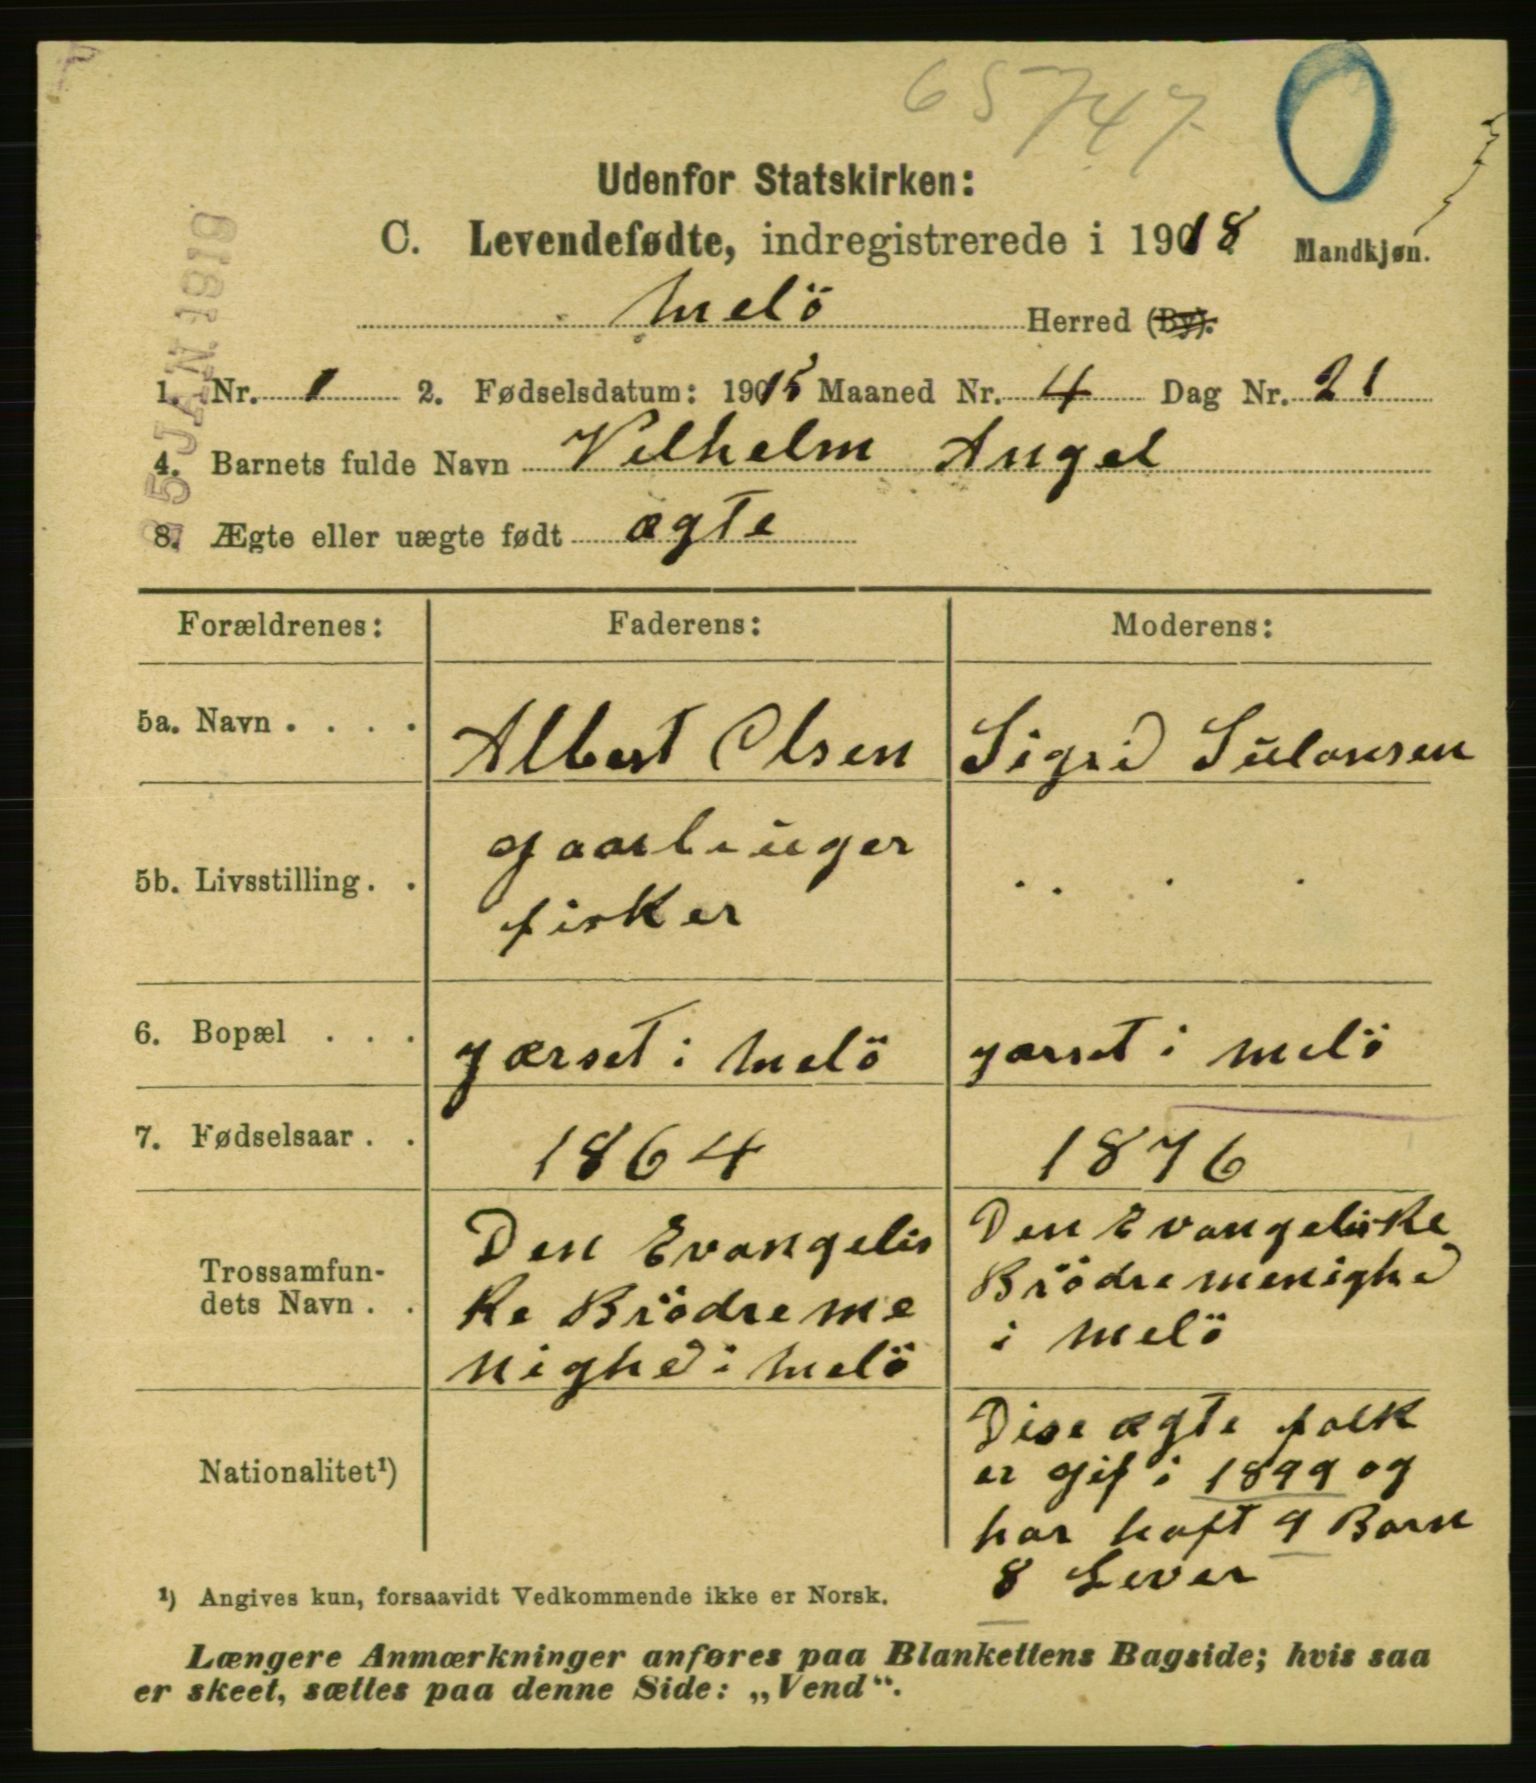 65747
0
Udenfor Statskirken:
C. Levendefødte, indregistrerede i 1918 Mandkjøn.
Melö Herred (By).
25 JAN. 1919
1. Nr. 1 2. Fødselsdatum: 1915 Maaned Nr. 4 Dag Nr. 21
4. Barnets fulde Navn Vilhelm Angel
8. Ægte eller uægte født ægte
Forældrenes: Faderens: Moderens:
5a. Navn . . . . Albert Olsen Sigrid Sülansen
5b. Livsstilling . . gaarbrüger
fisker
6. Bopæl . . . gærset i Melö gærset i Melö
7. Fødselsaar . . 1864 1876
Trossamfundets Navn . . Den Evangelis
ke Brödreme
nighed i Melö
Den Evangeliske
Brödremenighed
i Melö
Nationalitet¹)
Dise ægte folk
er gif i 1899 og
har haft 9 Barn
8 Lever
¹) Angives kun, forsaavidt Vedkommende ikke er Norsk.
Længere Anmærkninger anføres paa Blankettens Bagside; hvis saa
er skeet, sættes paa denne Side: „Vend“.